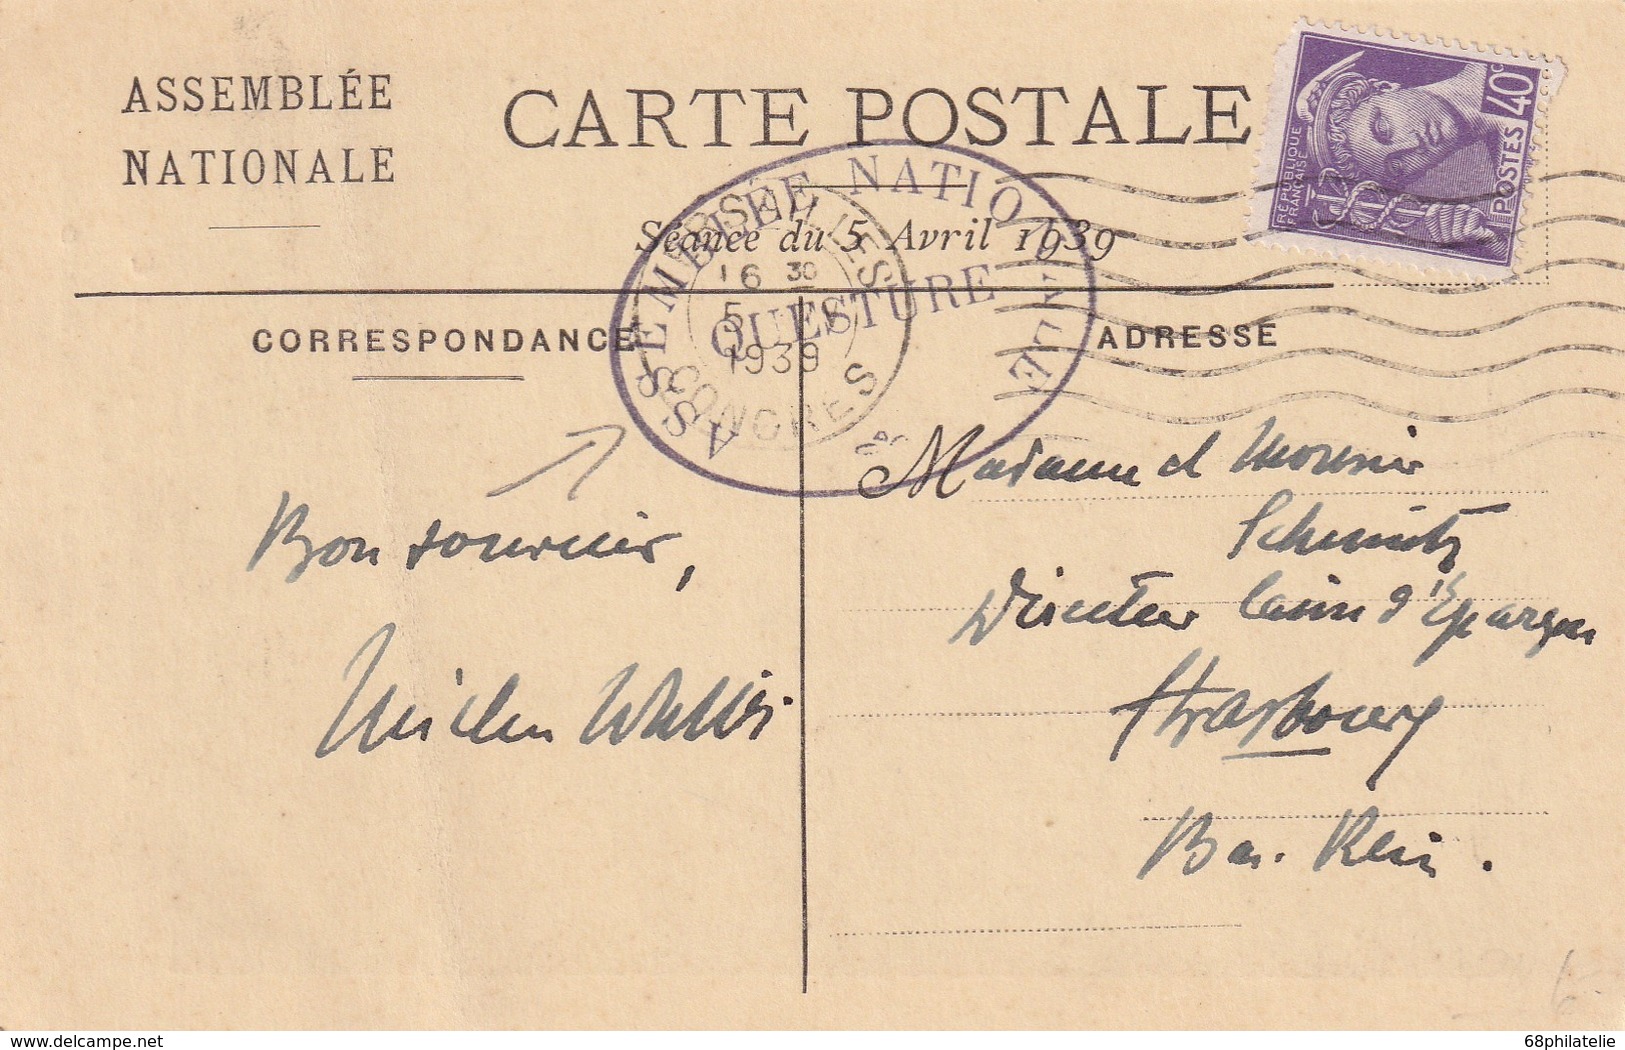 ASSEMBLÉE
NATIONALE
CARTE POSTALE
Séance du 5 Avril 1939
CORRESPONDANCE
ADRESSE
ASSEMBLÉE NATIONALE
QUESTURE
VERSAILLES
16 30
5 IV
1939
CONGRES
RÉPUBLIQUE
FRANÇAISE
POSTES
40c
Bon souvenir,
Madame et Monsieur
Schmitz
Directeur Caisse d'Épargne
Strasbourg
Bas. Rhin.
delcampe.net
68philatelie